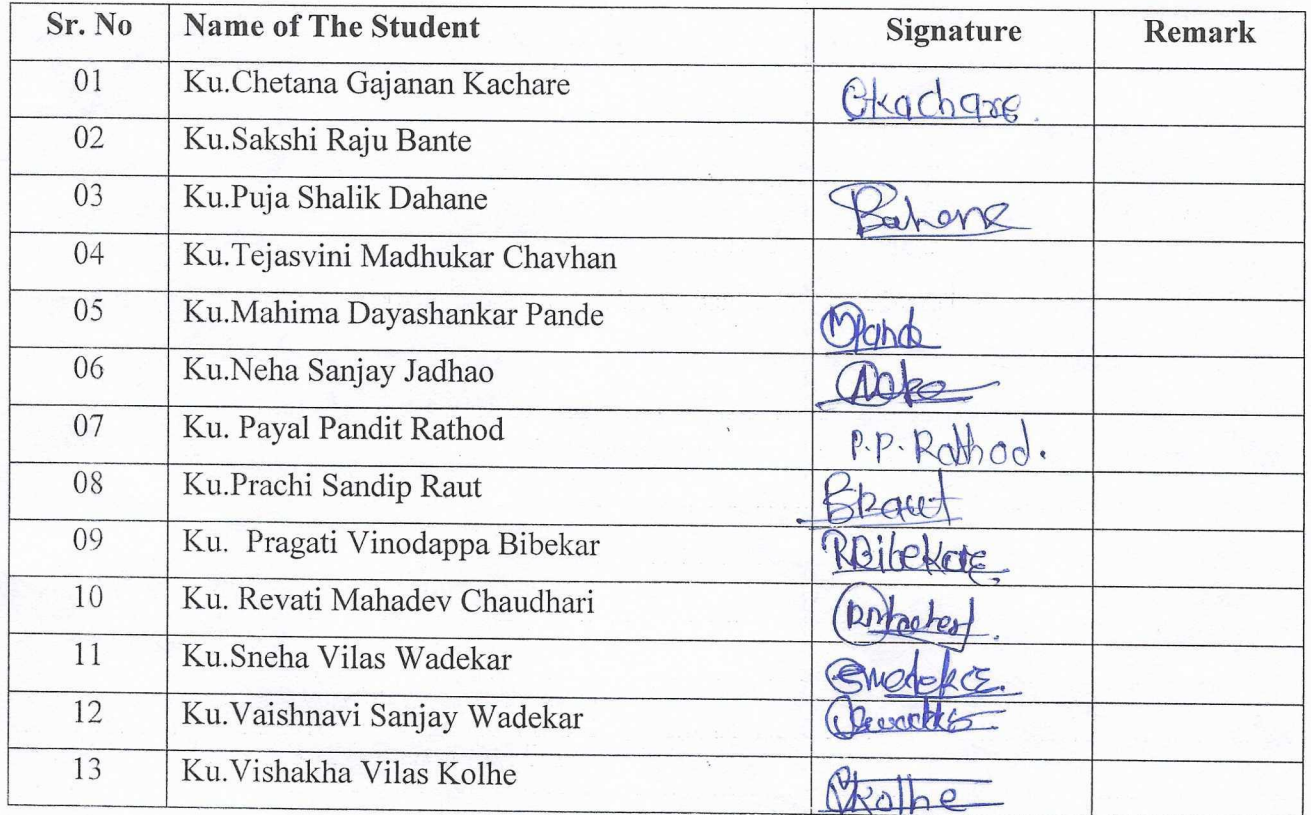 Sr. No Name of The Student Signature Remark
01 Ku.Chetana Gajanan Kachare Ckachare.
02 Ku.Sakshi Raju Bante
03 Ku.Puja Shalik Dahane
04 Ku.Tejasvini Madhukar Chavhan
05 Ku.Mahima Dayashankar Pande MPande
06 Ku.Neha Sanjay Jadhao
07 Ku. Payal Pandit Rathod P.P. Rathod.
08 Ku.Prachi Sandip Raut
09 Ku. Pragati Vinodappa Bibekar PBibekar
10 Ku. Revati Mahadev Chaudhari
11 Ku.Sneha Vilas Wadekar
12 Ku.Vaishnavi Sanjay Wadekar
13 Ku.Vishakha Vilas Kolhe Vkolhe